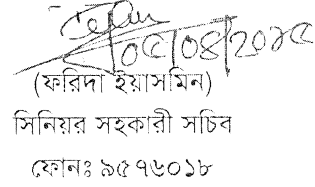 ০৫/০৪/২০১৫
(ফরিদা ইয়াসমিন)
সিনিয়র সহকারী সচিব
ফোনঃ ৯৫৭৬০১৮